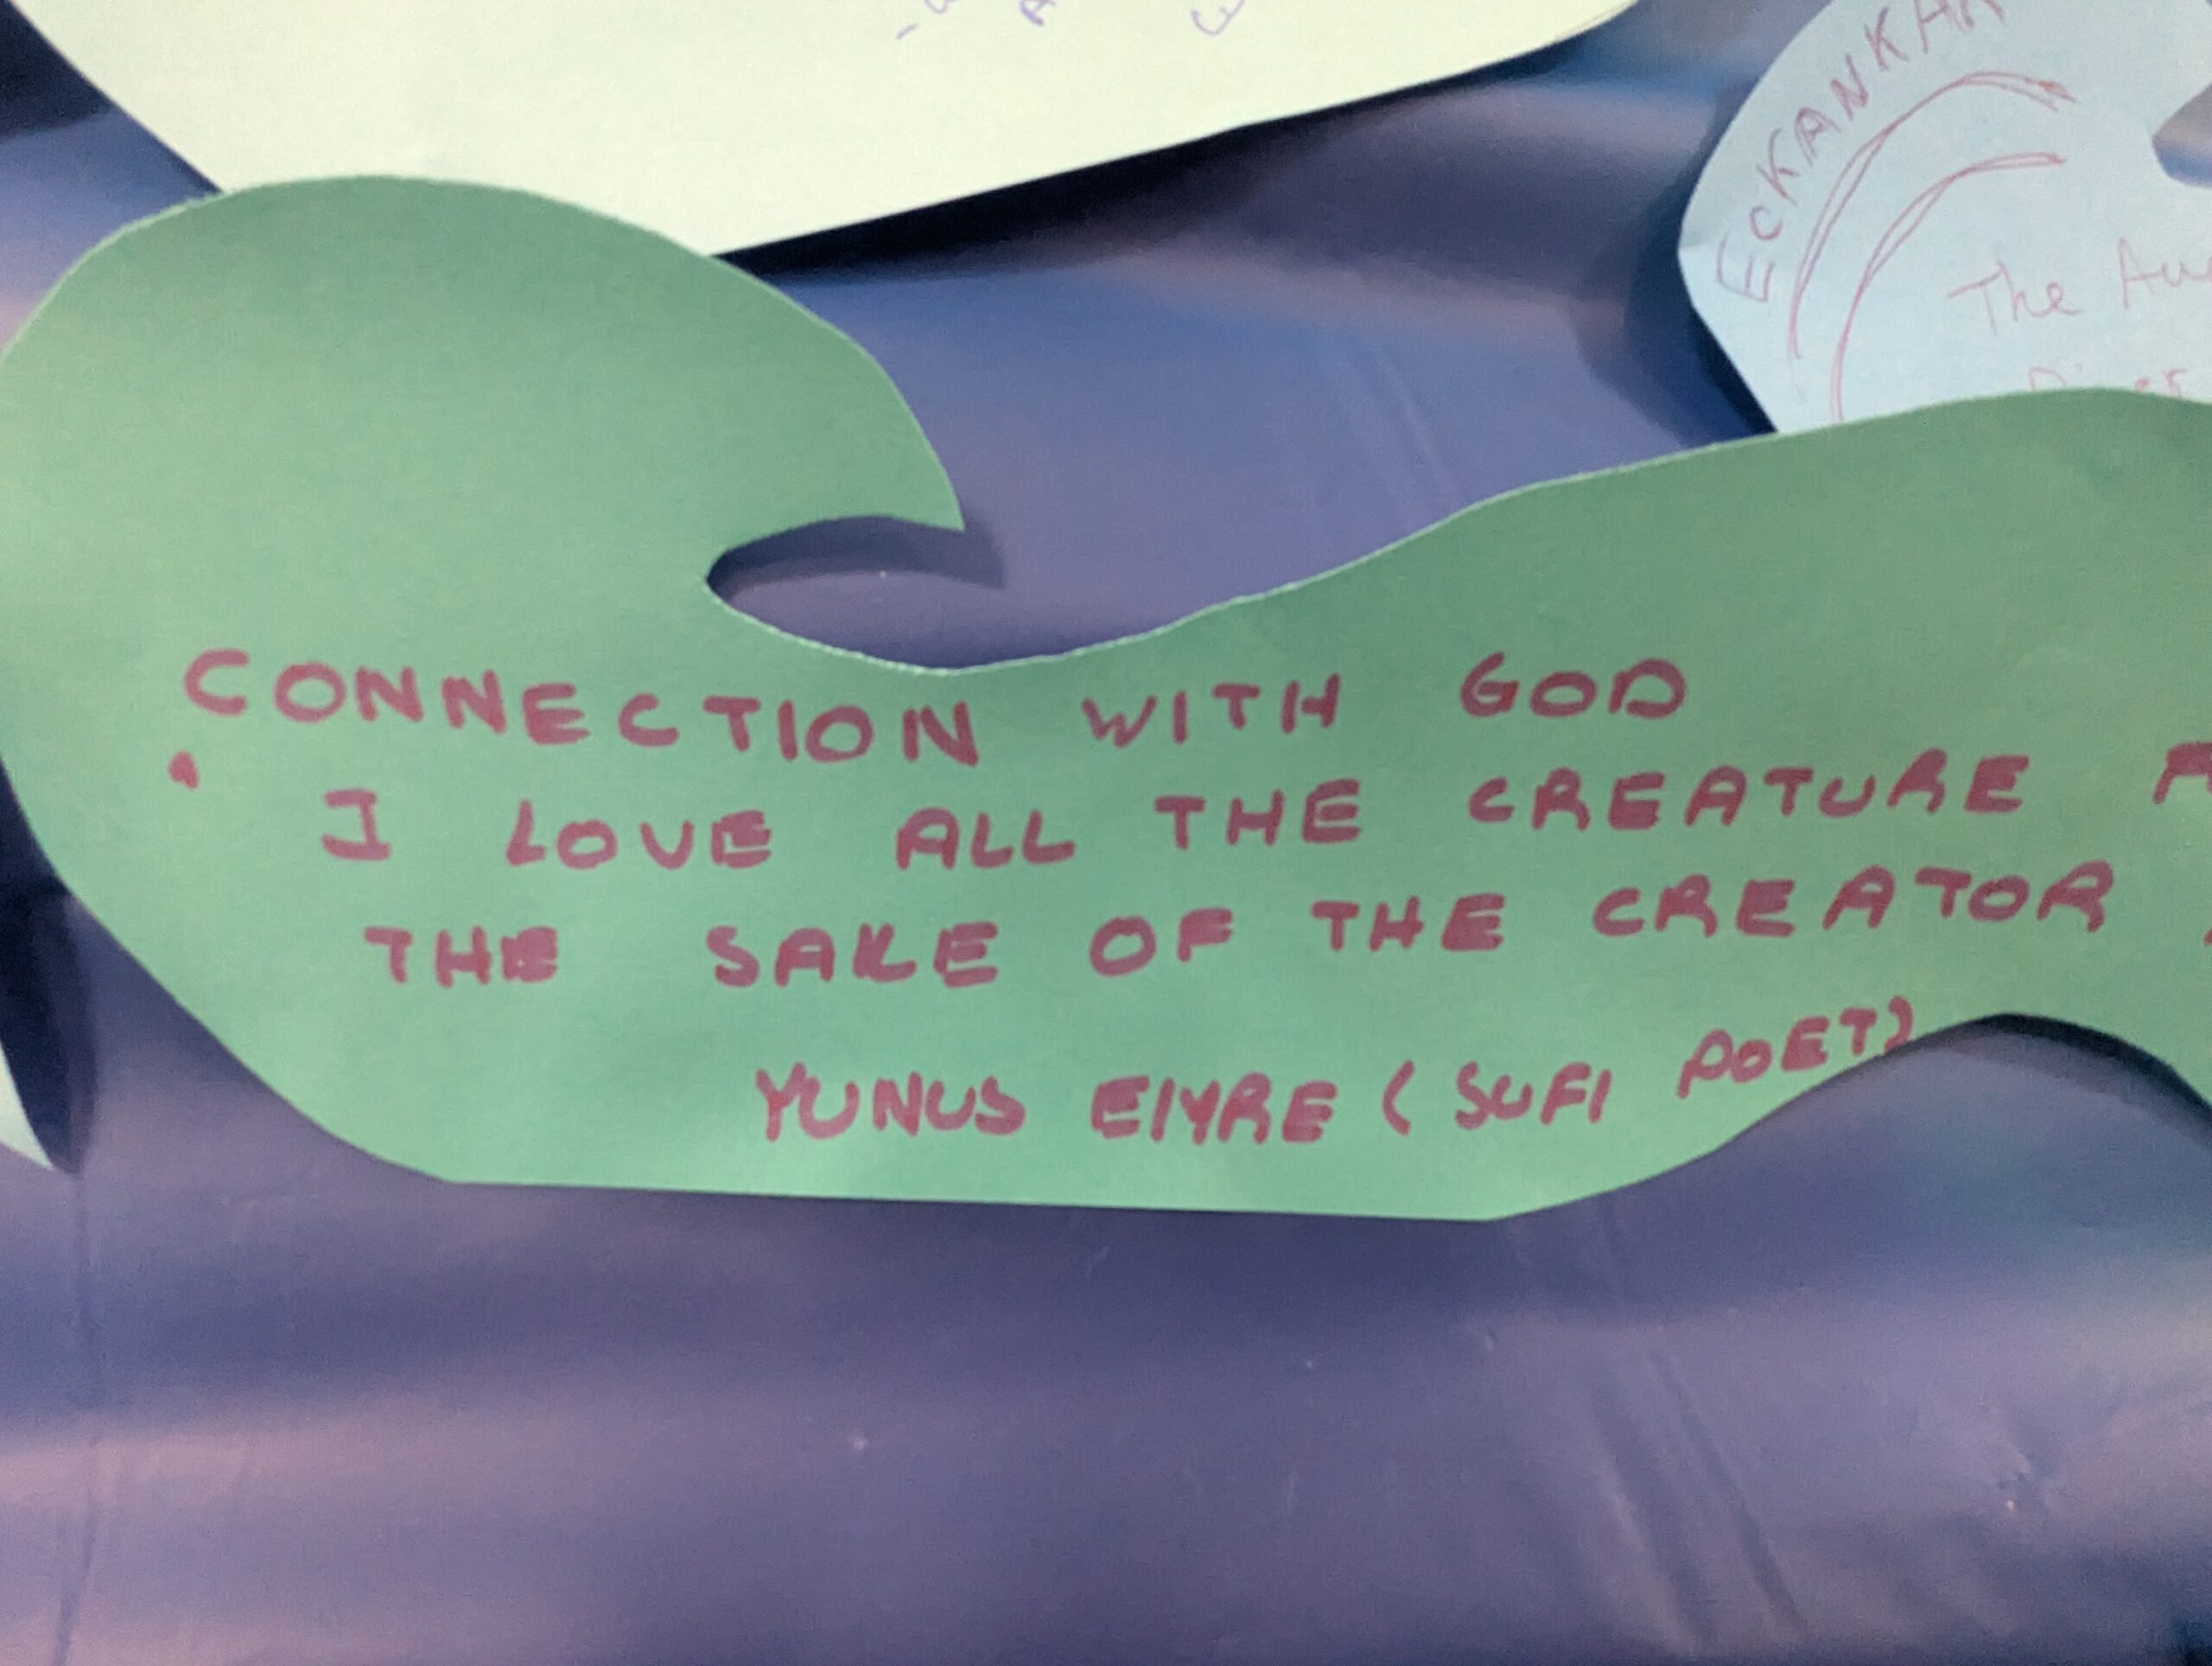 ECKANKAR
The
CONNECTION WITH GOD
' I LOVE ALL THE CREATURE
THE SAKE OF THE CREATOR
YUNUS EMRE ( SUFI POET)